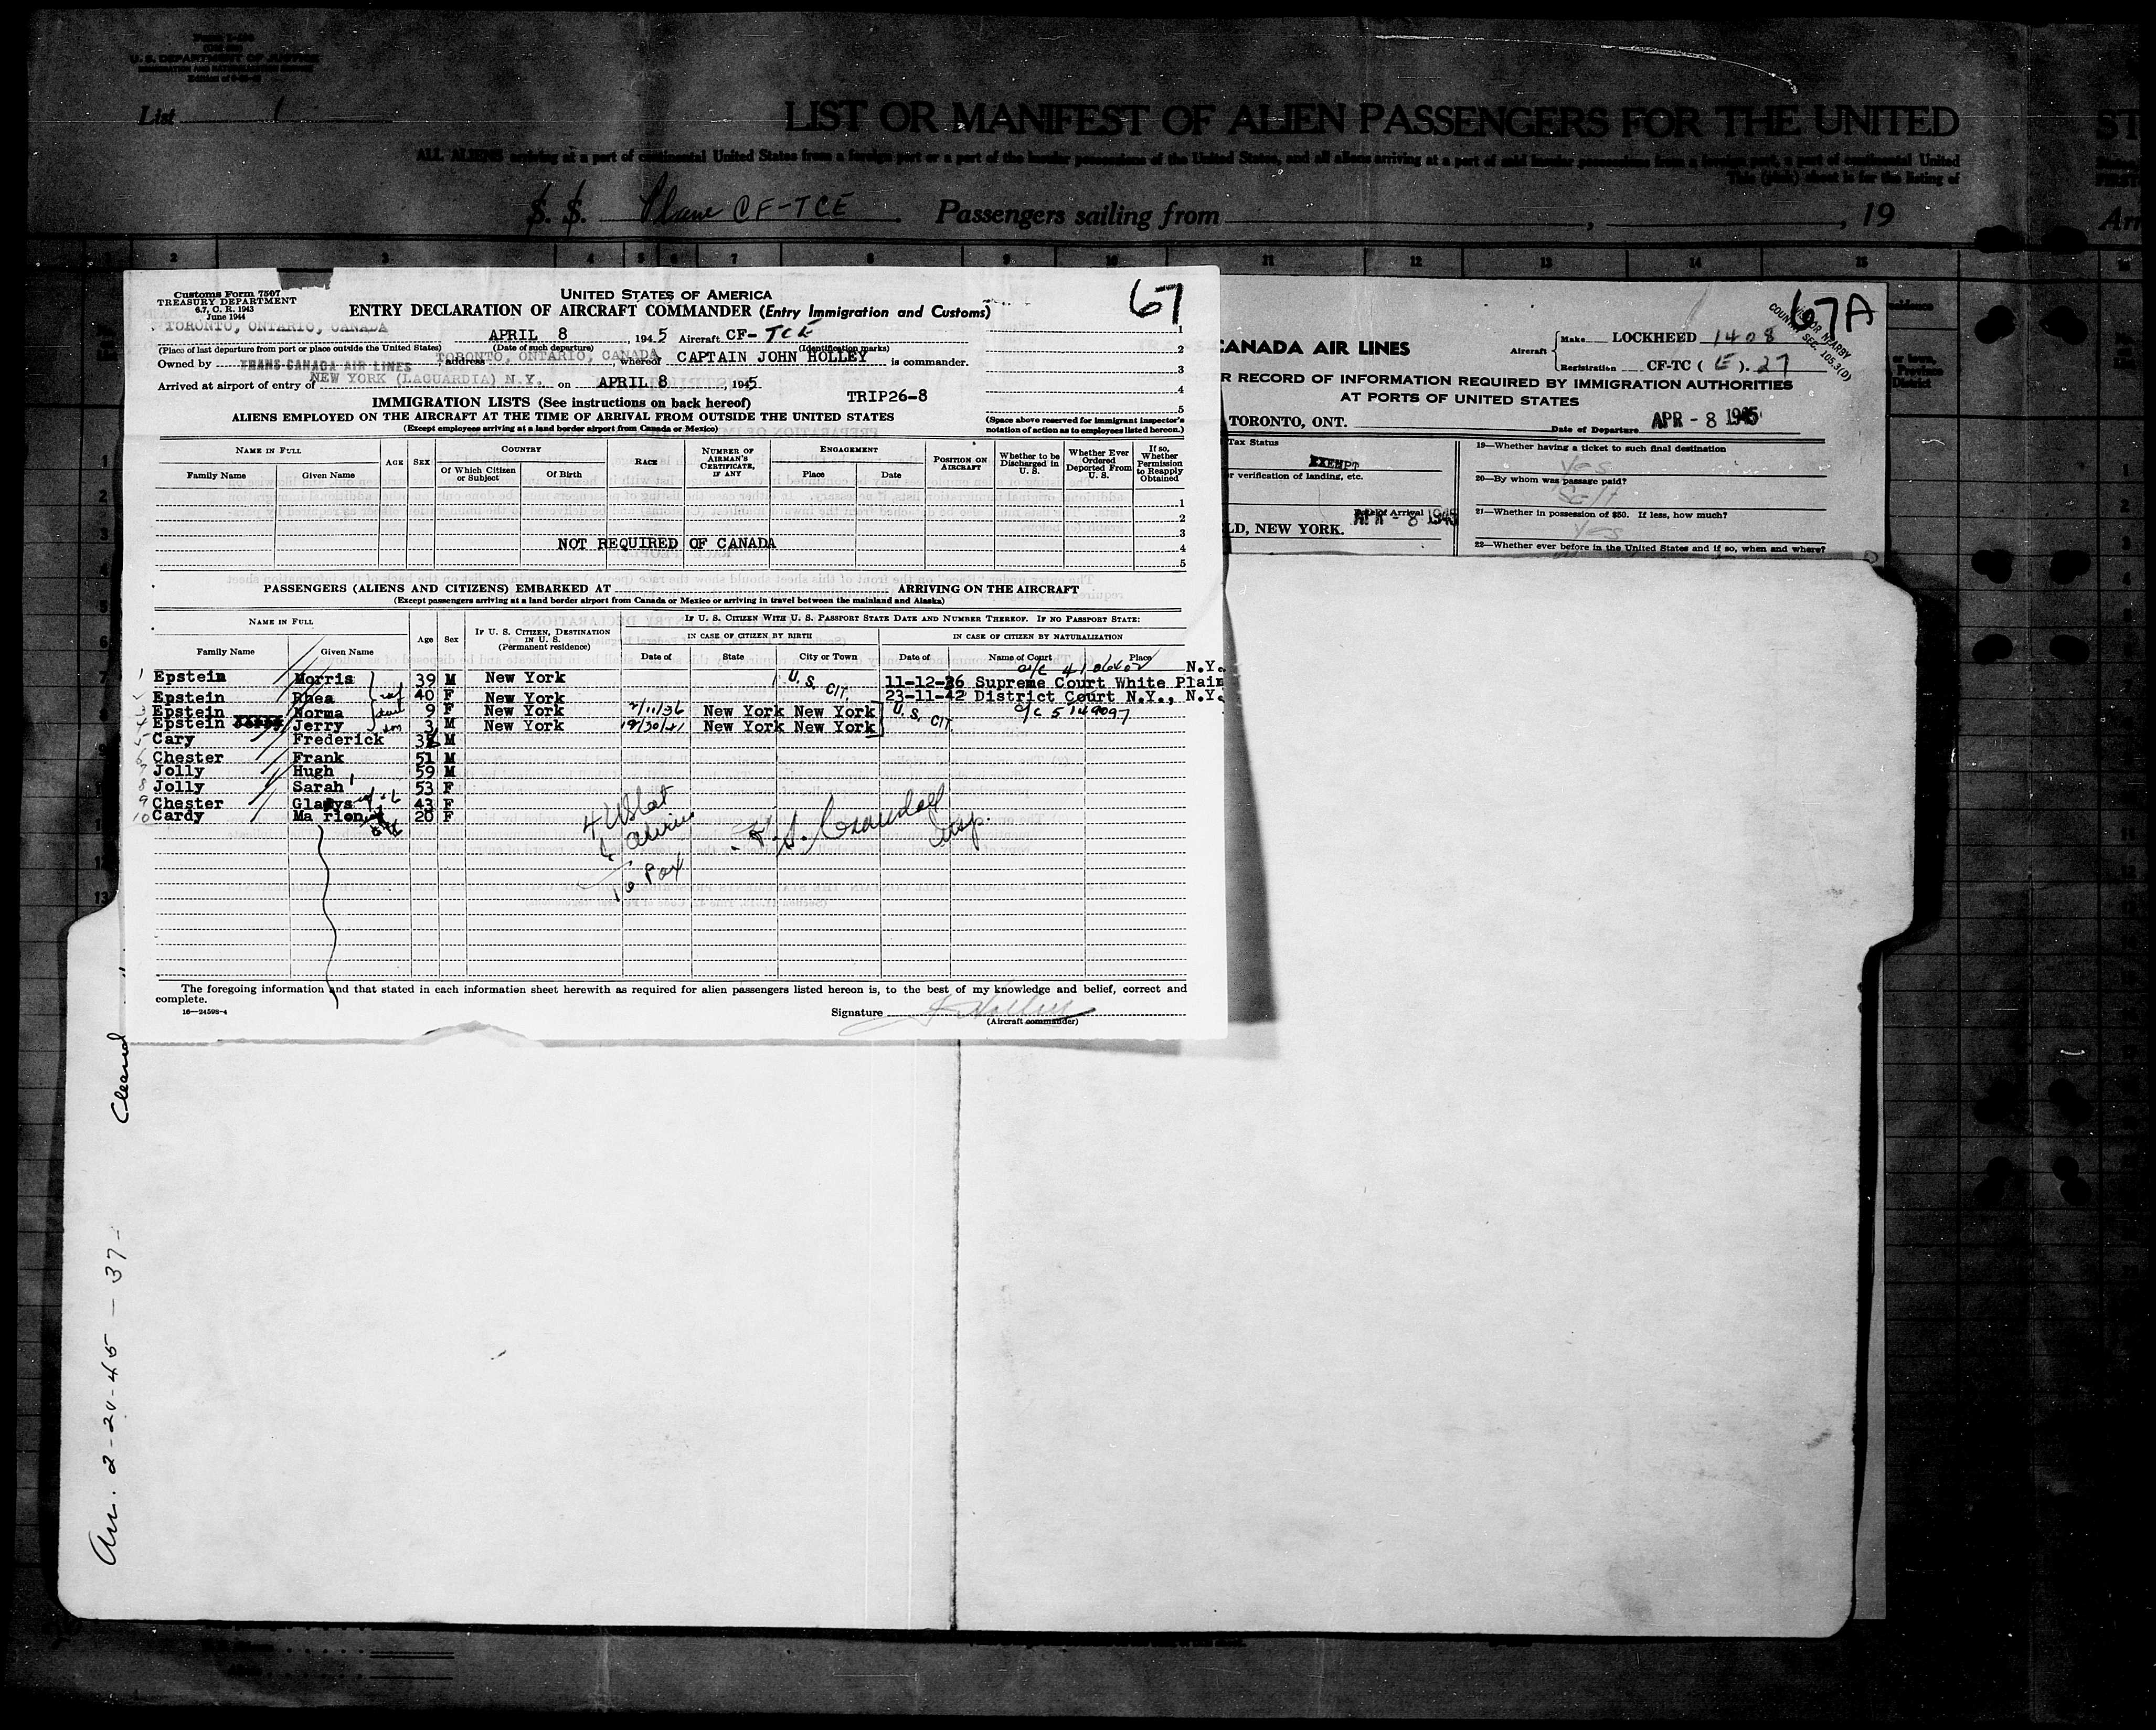 U. S. DEPARTMENT OF JUSTICE
List 1
LIST OR MANIFEST OF ALIEN PASSENGERS FOR THE UNITED
ST
ALL ALIENS arriving at a port of continental United States from a foreign port or a port of the insular possessions of the United States, and all aliens arriving at a port of said insular possessions from a foreign port, a port of continental United
This (pink) sheet is for the listing of
S. S. Plane CF-TCE. Passengers sailing from , , 19
Arr
1 2 3 4 5 6 7 8 9 10 11 12 13 14 15 16
Customs Form 7507
TREASURY DEPARTMENT
6.7, C. R. 1943
June 1944
UNITED STATES OF AMERICA
ENTRY DECLARATION OF AIRCRAFT COMMANDER (Entry Immigration and Customs)
67
TORONTO, ONTARIO, CANADA APRIL 8, 1945 Aircraft CF-TCE
(Place of last departure from port or place outside the United States) (Date of such departure) (Identification marks)
Owned by TRANS-CANADA AIR LINES, address TORONTO, ONTARIO, CANADA, whereof CAPTAIN JOHN HOLLEY is commander.
Arrived at airport of entry of NEW YORK (LAGUARDIA) N.Y. on APRIL 8, 1945.
1
2
3
4
5
TRIP26-8
IMMIGRATION LISTS (See instructions on back hereof)
ALIENS EMPLOYED ON THE AIRCRAFT AT THE TIME OF ARRIVAL FROM OUTSIDE THE UNITED STATES
(Except employees arriving at a land border airport from Canada or Mexico)
(Space above reserved for immigrant inspector's notation of action as to employees listed hereon.)
NAME IN FULL AGE SEX COUNTRY RACE NUMBER OF AIRMAN'S CERTIFICATE, IF ANY ENGAGEMENT POSITION ON AIRCRAFT Whether to be Discharged in U. S. Whether Ever Ordered Deported From U. S. If so, Whether Permission to Reapply Obtained
Family Name Given Name Of Which Citizen or Subject Of Birth Place Date
1
2
3
NOT REQUIRED OF CANADA 4
5
PASSENGERS (ALIENS AND CITIZENS) EMBARKED AT ARRIVING ON THE AIRCRAFT
(Except passengers arriving at a land border airport from Canada or Mexico or arriving in travel between the mainland and Alaska)
NAME IN FULL Age Sex IF U. S. CITIZEN, DESTINATION IN U. S. (Permanent residence) IF U. S. CITIZEN WITH U. S. PASSPORT STATE DATE AND NUMBER THEREOF. IF NO PASSPORT STATE:
IN CASE OF CITIZEN BY BIRTH IN CASE OF CITIZEN BY NATURALIZATION
Family Name Given Name Date of State City or Town Date of Name of Court Place
N.Y.
1 Epstein Morris 39 M New York U. S. CIT. 11-12-26 Supreme Court White Plain
2 Epstein Rhea 40 F New York 23-11-42 District Court N.Y., N.Y.
3 Epstein Norma 9 F New York 2/11/36 New York New York U. S. CIT. c/c 5149097
4 Epstein Jerry 3 M New York 12/30/41 New York New York
5 Cary Frederick M
6 Chester Frank 51 M
7 Jolly Hugh 59 M
8 Jolly Sarah 53 F
9 Chester Gladys 43 F
10 Cardy Marion 20 F
4 US
6 Aliens
10 Pax
Insp.
The foregoing information and that stated in each information sheet herewith as required for alien passengers listed hereon is, to the best of my knowledge and belief, correct and complete.
16—24598-4
Signature J Holley
(Aircraft commander)
67A
CANADA AIR LINES
Aircraft Make LOCKHEED 1408
Registration CF-TC (E). 27
R RECORD OF INFORMATION REQUIRED BY IMMIGRATION AUTHORITIES
AT PORTS OF UNITED STATES
TORONTO, ONT. Date of Departure APR - 8 1945
Tax Status
EXEMPT
r verification of landing, etc.
LD, NEW YORK. Date of Arrival APR - 8 1945
19—Whether having a ticket to such final destination
Yes
20—By whom was passage paid?
Self
21—Whether in possession of $50. If less, how much?
Yes
22—Whether ever before in the United States and if so, when and where?
Cleared
Arr. 2-20-45 — 37-